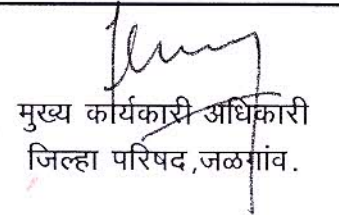 मुख्य कार्यकारी अधिकारी
जिल्हा परिषद,जळगांव.